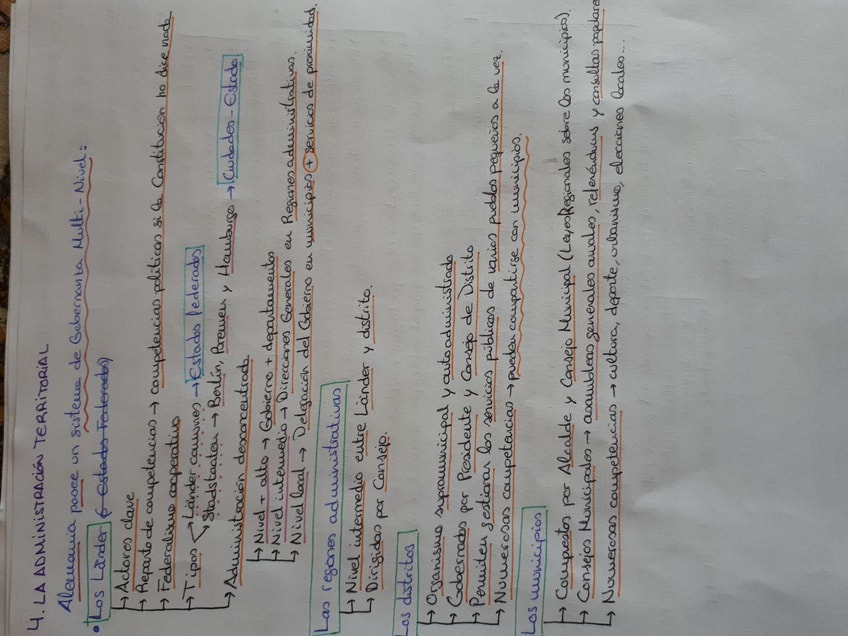 4. LA ADMINISTRACIÓN TERRITORIAL
Alemania posee un sistema de Gobernanza Multi-Nivel:
• Los Länder (6 Estados Federados)
→ Actores clave
→ Reparto de competencias → competencias políticas si la Constitución no dice nada
→ Federalismo cooperativo
→ Tipos → Länder comunes → Estados federados
→ Stadstaaten → Berlín, Bremen y Hamburgo → Ciudades-Estado
→ Administración desconcentrada
→ Nivel + alto → Gobierno + departamentos
→ Nivel intermedio → Direcciones Generales en Regiones administrativas
→ Nivel local → Delegación del Gobierno en municipios + servicios de proximidad.
Las regiones administrativas
→ Nivel intermedio entre Länder y distrito.
→ Dirigidas por Consejo.
Los distritos
→ Organismo supramunicipal y autoadministrado
→ Gobernados por Presidente y Consejo de Distrito
→ Permiten gestionar los servicios públicos de varios pueblos pequeños a la vez.
→ Numerosas competencias → pueden compartirse con municipios.
Los municipios
→ Compuestos por Alcalde y Consejo Municipal (Leyes Regionales sobre los municipios).
→ Consejos Municipales → asambleas generales anuales, referéndums y consultas populares
→ Numerosas competencias → cultura, deporte, urbanismo, elecciones locales...